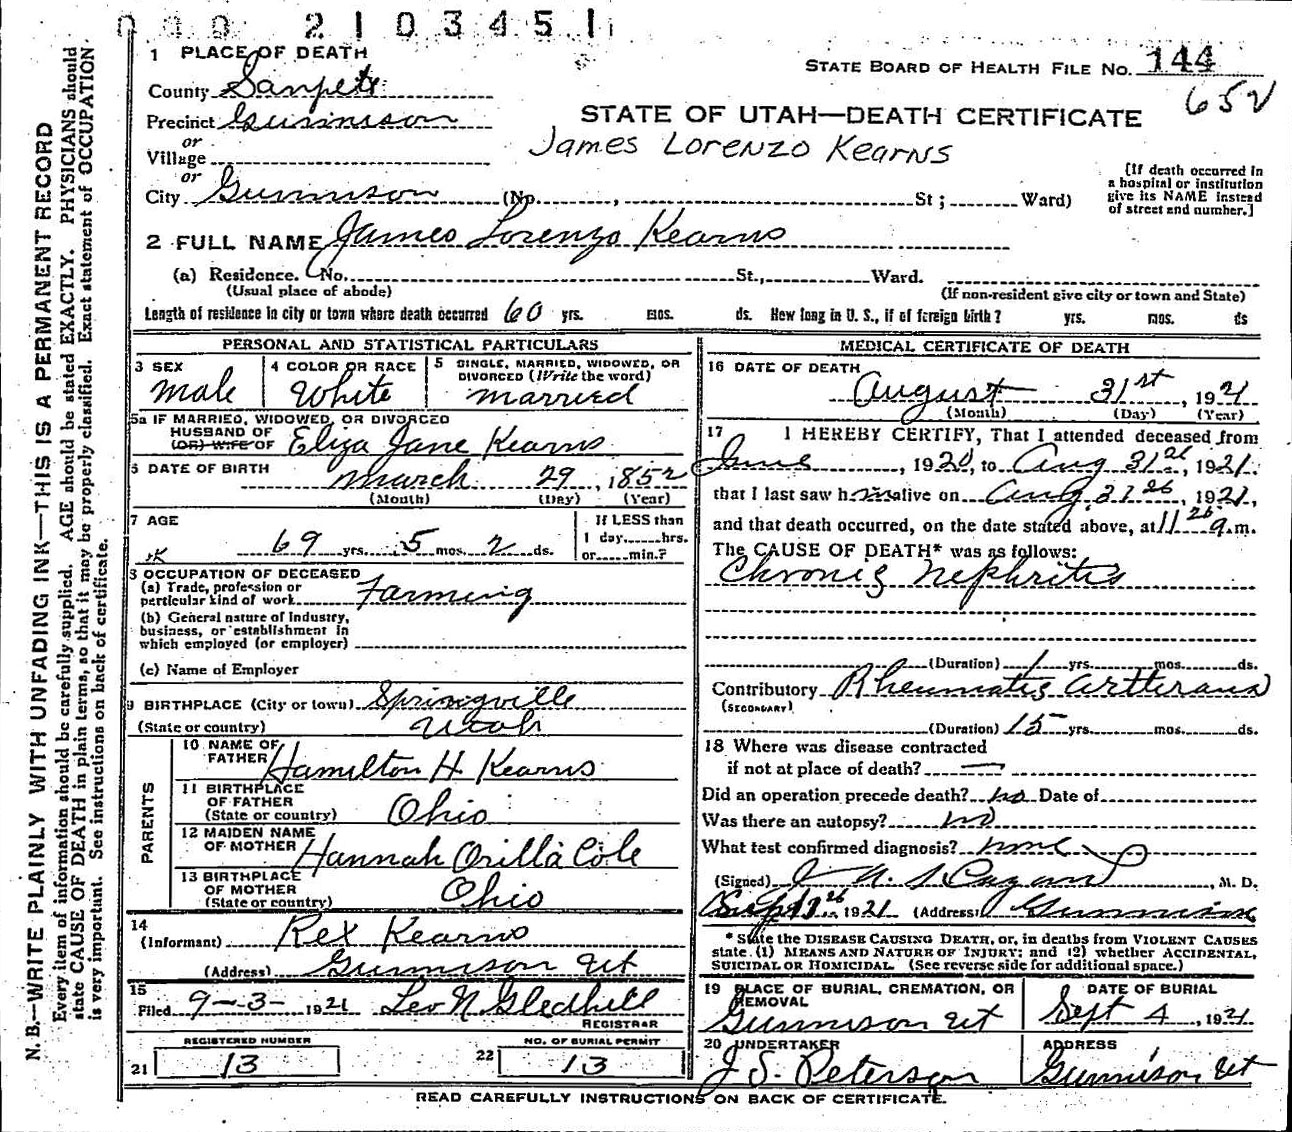 000 2103451
1 PLACE OF DEATH
STATE BOARD OF HEALTH FILE NO. 144
652
County Sanpete
STATE OF UTAH—DEATH CERTIFICATE
Precinct Gunnison
James Lorenzo Kearns
or
Village
or
City Gunnison (No. , St; Ward)
[If death occurred in
a hospital or institution
give its NAME instead
of street and number.]
2 FULL NAME James Lorenzo Kearns
(a) Residence. No. St., Ward.
(Usual place of abode) (If non-resident give city or town and State)
Length of residence in city or town where death occurred 60 yrs. mos. ds. How long in U. S., if of foreign birth? yrs. mos. ds
PERSONAL AND STATISTICAL PARTICULARS
3 SEX
male
4 COLOR OR RACE
White
5 SINGLE, MARRIED, WIDOWED, OR
DIVORCED (Write the word)
married
5a IF MARRIED, WIDOWED, OR DIVORCED
HUSBAND OF
(OR) WIFE OF Eliza Jane Kearns
6 DATE OF BIRTH March 29, 1852
(Month) (Day) (Year)
7 AGE
69 yrs. 5 mos. 2 ds.
If LESS than
1 day, hrs.
or min.?
8 OCCUPATION OF DECEASED
(a) Trade, profession or
particular kind of work Farming
(b) General nature of industry,
business, or establishment in
which employed (or employer)
(c) Name of Employer
9 BIRTHPLACE (City or town) Springville
(State or country) Utah
PARENTS
10 NAME OF
FATHER Hamilton H Kearns
11 BIRTHPLACE
OF FATHER
(State or country) Ohio
12 MAIDEN NAME
OF MOTHER Hannah Orilla Cole
13 BIRTHPLACE
OF MOTHER
(State or country) Ohio
14
(Informant) Rex Kearns
(Address) Gunnison Ut
15
Filed 9-3- 1921 Leo N. Gledhill
REGISTRAR
REGISTERED NUMBER
21 13
NO. OF BURIAL PERMIT
22 13
MEDICAL CERTIFICATE OF DEATH
16 DATE OF DEATH
August 31st, 1921
(Month) (Day) (Year)
17 I HEREBY CERTIFY, That I attended deceased from
June, 1920, to Aug 31st, 1921.
that I last saw him alive on Aug 31, 1921,
and that death occurred, on the date stated above, at 11 a.m.
The CAUSE OF DEATH* was as follows:
Chronic Nephritis
(Duration) 1 yrs. mos. ds.
Contributory Rheumatic
(SECONDARY)
(Duration) 15 yrs. mos. ds.
18 Where was disease contracted
if not at place of death? —
Did an operation precede death? no Date of
Was there an autopsy? no
What test confirmed diagnosis? none
(Signed) , M. D.
1921 (Address) Gunnison
* State the DISEASE CAUSING DEATH, or, in deaths from VIOLENT CAUSES
state (1) MEANS AND NATURE OF INJURY; and (2) whether ACCIDENTAL,
SUICIDAL OR HOMICIDAL. (See reverse side for additional space.)
19 PLACE OF BURIAL, CREMATION, OR
REMOVAL
Gunnison Ut
DATE OF BURIAL
Sept 4, 1921
20 UNDERTAKER
J. S. Peterson
ADDRESS
Gunnison Ut
READ CAREFULLY INSTRUCTIONS ON BACK OF CERTIFICATE.
N. B.—WRITE PLAINLY WITH UNFADING INK—THIS IS A PERMANENT RECORD
Every item of information should be carefully supplied. AGE should be stated EXACTLY. PHYSICIANS should
state CAUSE OF DEATH in plain terms, so that it may be properly classified. Exact statement of OCCUPATION
is very important. See instructions on back of certificate.